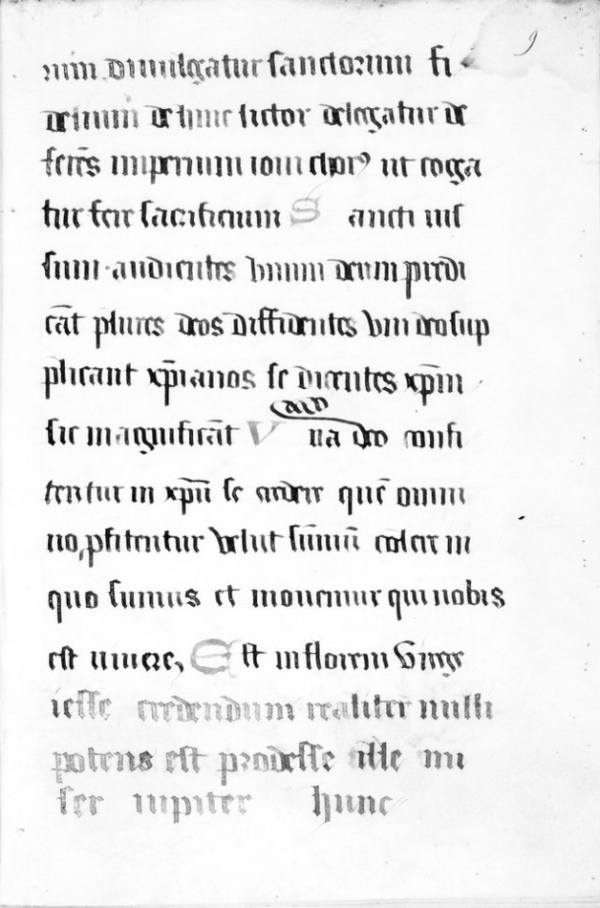 9
rum divulgatur sanctorum fi
demum de hinc lictor delegatur de
ferēs imperium ioui choꝝ ut coga
tur feir sacrificium S ancti uis
sum audientes vnum deum predi
cāt plures deos diffidentes vni deo sup
plicant xp̄ianos se dicentes xp̄m
sic magnificāt V na deo confi
tentur in xpm̄ se credere quē omni
no ꝓfitentur velut sūmū colere in
quo sumus et mouemur qui nobis
est uiuere, E st in florem virge
iesse credendum realiter nulli
potens est prodesse ille mi
ser iupiter hunc